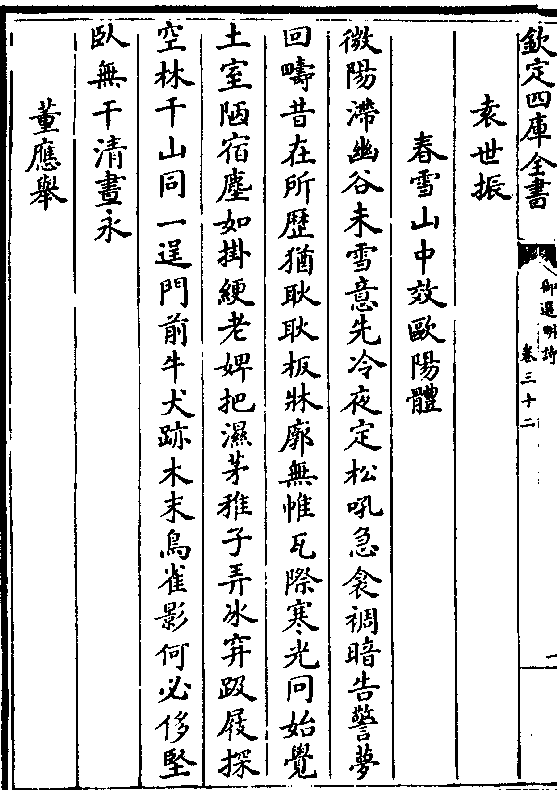 欽定四庫全書
御選明詩
卷三十二
袁世振
春雪山中效歐陽體
微陽滯幽谷未雪意先冷夜定松吼急衾裯暗告警夢
回疇昔在所歷猶耿耿板牀廓無帷瓦際寒光冏始覺
土室陋宿塵如掛綆老婢把濕茅稚子弄冰穽趿屐探
空林千山同一逞門前牛犬跡木末鳥雀影何必侈堅
臥無干清晝永
董應舉